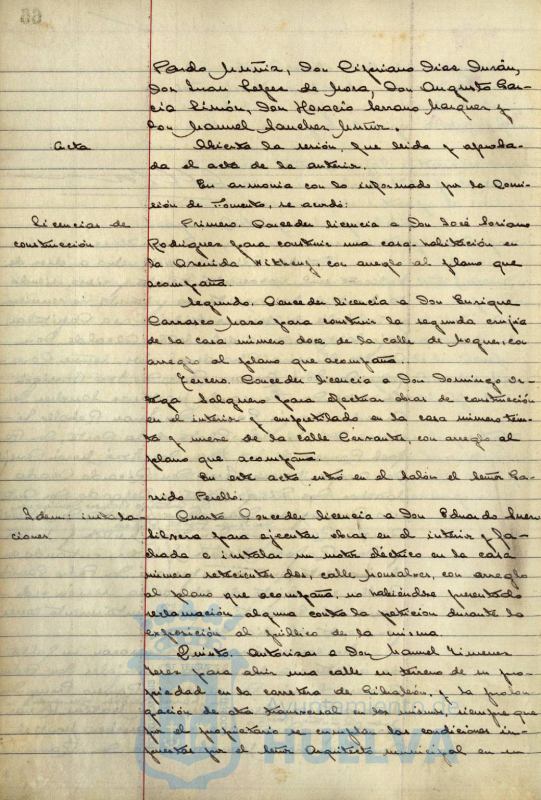 Pardo Muñiz, Don Cipriano Dias Durán,
Don Juan Lopez de Mora, Don Augusto Gar-
cia Simón, Don Horacio Serrano Marquez y
Don Manuel Sanchez Muñiz.
Acta
Abierta la sesión, fue leida y aproba-
da el acta de la anterior.
En armonia con lo informado por la Comi-
sión de Fomento, se acordó:
Licencias de
construcción
Primero. Conceder licencia a Don José Soriano
Rodriguez para construir una casa-habitación en
la Avenida con arreglo al plano que
acompaña.
Segundo. Conceder licencia a Don Enrique
Carrasco para construir la segunda crujía
de la casa número doce de la calle de Moguer, con
arreglo al plano que acompaña.
Tercero. Conceder licencia a Don Domingo Or-
tega Salguero para efectuar obras de construcción
en el interior y empretilado en la casa número trein-
ta y nueve de la calle Cervantes, con arreglo al
plano que acompaña.
En este acto entró en el Salón el Señor Ga-
rrido Perelló.
Idem: instala-
ciones
Cuarto. Conceder licencia a Don Eduardo
para ejecutar obras en el interior y fa-
chada e instalar un motor eléctrico en la casa
número setecientos dos, calle Monsalves, con arreglo
al plano que acompaña, no habiéndose presentado
reclamación alguna contra la petición durante la
exposición al público de la misma.
Quinto. Autorizar a Don Manuel Ximenez
Jerez para abrir una calle en terreno de su pro-
piedad en la carretera de Gibraleón, y la prolon-
gación de otra transversal a los mismos, siempre que
por el propietario se cumplan las condiciones im-
puestas por el Señor Arquitecto municipal en su
Ayuntamiento de
HUELVA